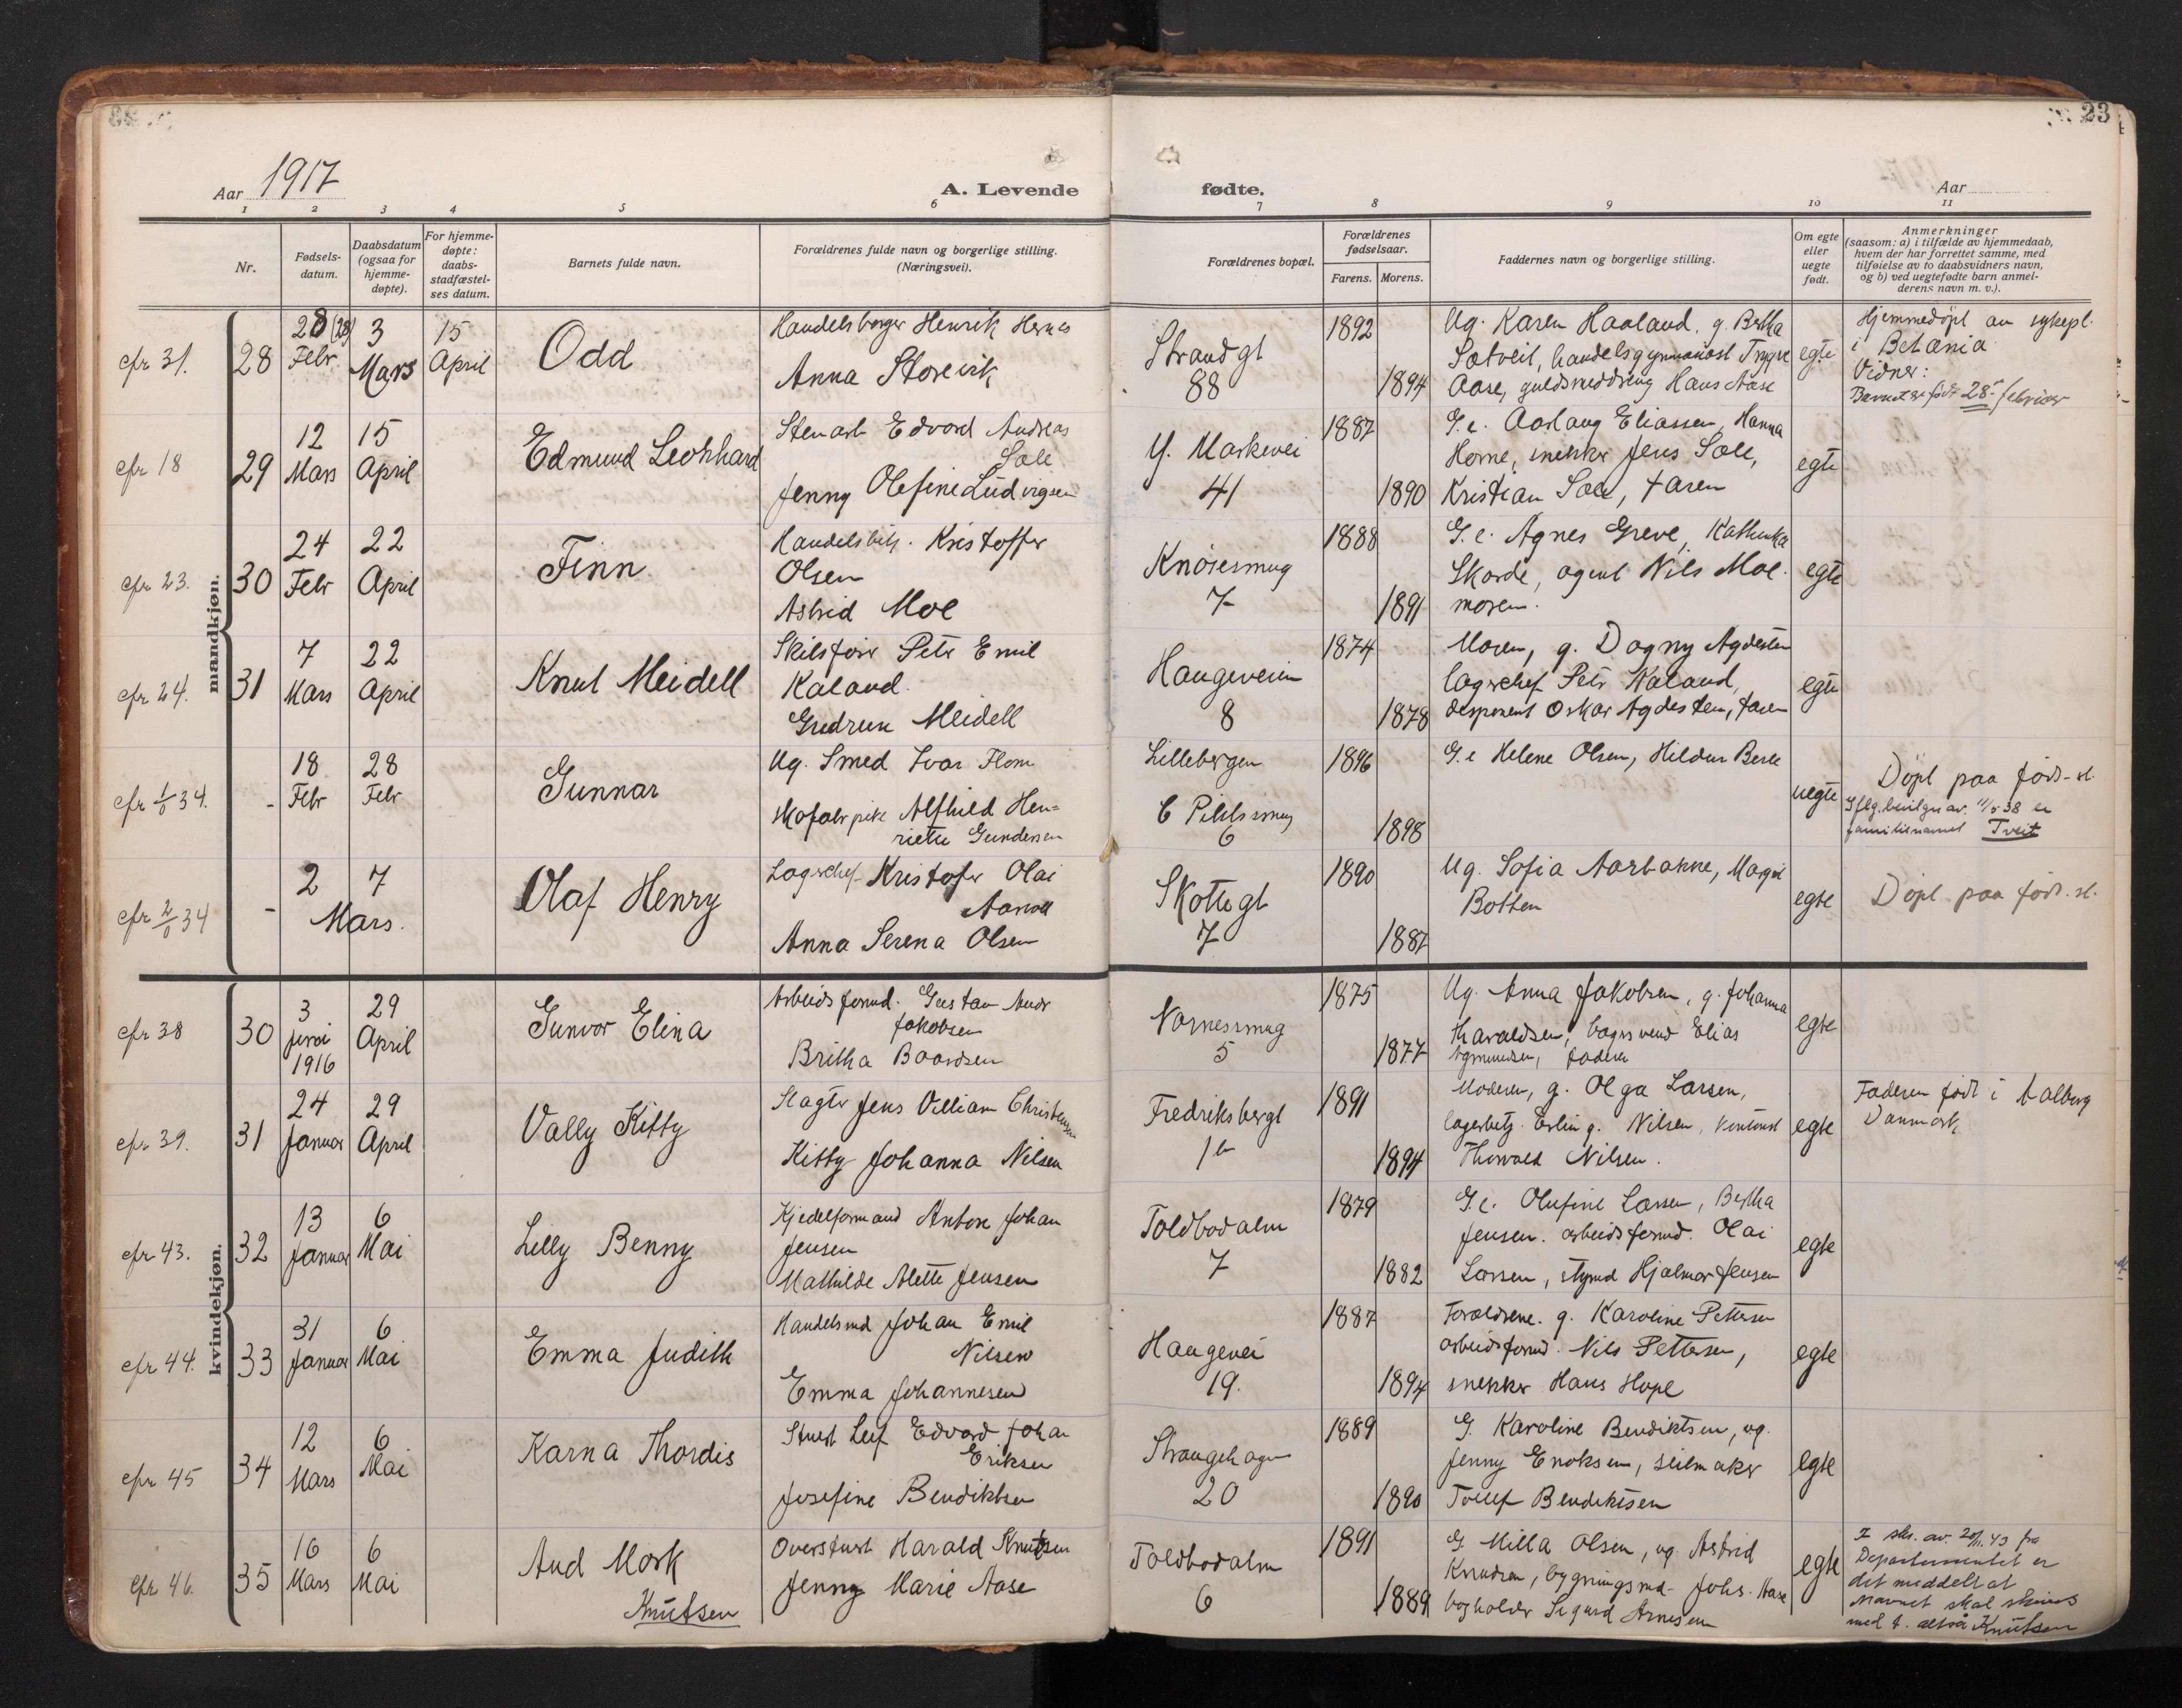 23
Aar 1917
A. Levende
fødte.
Aar
1 2 3 4 5 6 7 8 9 10 11
Nr.
Fødsels-
datum.
Daabsdatum
(ogsaa for
hjemme-
døpte).
For hjemme-
døpte:
daabs-
stadfæstel-
ses datum.
Barnets fulde navn.
Forældrenes fulde navn og borgerlige stilling.
(Næringsvei).
Forældrenes bopæl.
Forældrenes
fødselsaar.
Farens. Morens.
Faddernes navn og borgerlige stilling.
Om egte
eller
uegte
født.
Anmerkninger
(saasom: a) i tilfælde av hjemmedaab,
hvem der har forrettet samme, med
tilføielse av to daabsvidners navn,
og b) ved uegtefødte barn anmel-
derens navn m. v.).
mandkjøn.
cfr 31. 28
28 (28)
Febr
3
Mars
15
April
Odd
Handelsborger Henrik Hernes
Anna Storevik
Strandgt
88
1892
1894
Ug. Karen Haaland, g. Bertha
Sætveit, handelsgymnasiast Trygve
Aase, guldsmeddreng Hans Aase
egte
Hjemmedøpt av sykepl.
i Betania
Vidner:
Barnet er født 28. februar
cfr 18 29
12
Mars
15
April
Edmund Leonhard
Stenarb Edvard Andreas
Sæle
Jenny Olefine Ludvigsen
Y. Markevei
41
1887
1890
G. e. Aaslaug Eliassen, Hanna
Horne, snekker Jens Sæle,
Kristian Sæle, faren
egte
cfr 23. 30
24
Febr
22
April
Finn
Handelsbetj. Kristoffer
Olsen
Astrid Moe
Knøsesmug
7
1888
1891
G. e. Agnes Greve, Kathinka
Skorde, agent Nils Moe.
moren.
egte
cfr 24. 31
7
Mars
22
April
Knut Meidell
Skibsfører Peter Emil
Kaland.
Gudrun Meidell
Haugeveien
8
1874
1878
Moren, g. Dagny Agdesten
lagerchef Peter Kaland,
disponent Oskar Agdesten, faren
egte
cfr 1/0 34. -
18
Febr
28
Febr
Gunnar
Ug. Smed Ivar Flom
skofabrpike Alfhild Hen-
riette Gundersen
Lillebergen
6
1896
1898
G. e Helene Olsen, Hildur Berle
uegte
Døpt paa føds-st.
Iflg. bevilgn av. 11/5 38 er
familienavnet Tveit
cfr 2/0 34 -
2 7
Mars.
Olaf Henry
Lagerchef Kristofer Olai
Aarvoll
Anna Serena Olsen
Skottegt
7
1890
1887
Ug. Sofia Aarbakke, Margit
Botten
egte
Døpt paa føds. st.
kvindekjøn.
cfr 38 30
3
juni
1916
29
April
Gunvor Elina
Arbeidsformd. Gustav Andr
Jakobsen
Britha Baardsen
Nornessmug
5
1875
1877
Ug. Anna Jakobsen, g. Johanna
Haraldsen, vognmand Elias
Sigmundsen, faderen
egte
cfr 39. 31
24
Januar
29
April
Vally Kitty
Slagter Jens Villiam Christensen
Kitty Johanna Nilsen
Fredriksbergt
1b
1891
1894
Moderen, g. Olga Larsen,
lagerbetj. Erling. Nilsen, kontorist
Thorvald Nilsen.
egte
Faderen født i Aalborg
Danmark
cfr 43. 32
13
Januar
6
Mai
Lilly Benny
Kjedelformand Anton Johan
Jensen
Mathilde Alette Jensen
Toldbodalm
7
1879
1882
G. e. Olufine Larsen, Bertha
Jensen. arbeidsformd. Olai
Larsen, styrmd Hjalmar Jensen
egte
cfr 44. 33
31
Januar
6
Mai
Emma Judith
Handelsmd Johan Emil
Nilsen
Emma Johannesen
Haugevei
19.
1887
1894
Forældrene. g. Karoline Pettersen
arbeidsformd. Nils Pettersen,
snekker Hans Hope
egte
cfr 45 34
12
Mars
6
Mai
Karna Thordis
Stuert Leif Edvard Johan
Eriksen
Josefine Bendiktsen
Strangehagen
20
1889
1890
G. Karoline Bendiktsen, ug.
Jenny Enoksen, seilmaker
Tollef Bendiktsen
egte
cfr 46. 35
16
Mars
6
Mai
Aud Mork
Knutsen
Overstuert Harald Knutsen
Jenny Marie Aase
Toldbodalm
6
1891
1889
G Milla Olsen, ug. Astrid
Knudsen, bygningsmd. Johs. Aase
bogholder Sigurd Arnesen
egte
I skr. av. 20/11.43 fra
Departementet er
det meddelt at
navnet skal skrives
med t. altså Knutsen